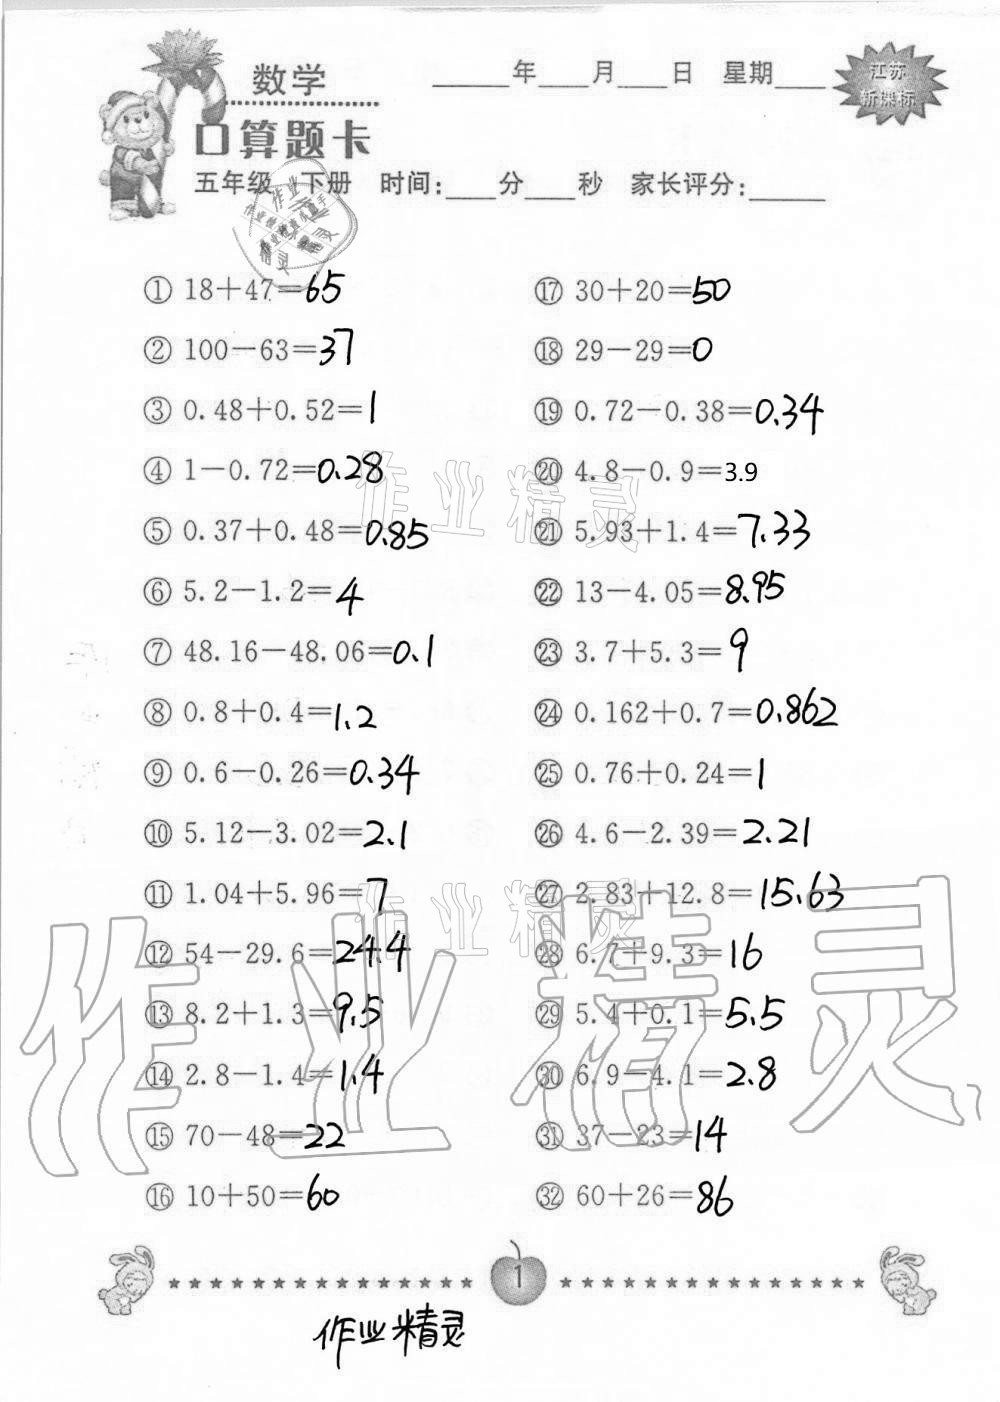 数学
____年____月____日 星期____
江苏
新课标
口算题卡
五年级 下册 时间:____分____秒 家长评分:______
① 18+47=65
⑰ 30+20=50
② 100-63=37
⑱ 29-29=0
③ 0.48+0.52=1
⑲ 0.72-0.38=0.34
④ 1-0.72=0.28
⑳ 4.8-0.9=3.9
⑤ 0.37+0.48=0.85
㉑ 5.93+1.4=7.33
⑥ 5.2-1.2=4
㉒ 13-4.05=8.95
⑦ 48.16-48.06=0.1
㉓ 3.7+5.3=9
⑧ 0.8+0.4=1.2
㉔ 0.162+0.7=0.862
⑨ 0.6-0.26=0.34
㉕ 0.76+0.24=1
⑩ 5.12-3.02=2.1
㉖ 4.6-2.39=2.21
⑪ 1.04+5.96=7
㉗ 2.83+12.8=15.63
⑫ 54-29.6=24.4
㉘ 6.7+9.3=16
⑬ 8.2+1.3=9.5
㉙ 5.4+0.1=5.5
⑭ 2.8-1.4=1.4
㉚ 6.9-4.1=2.8
⑮ 70-48=22
㉛ 37-23=14
⑯ 10+50=60
㉜ 60+26=86
作业精灵
作业精灵
作业精灵
1
作业精灵